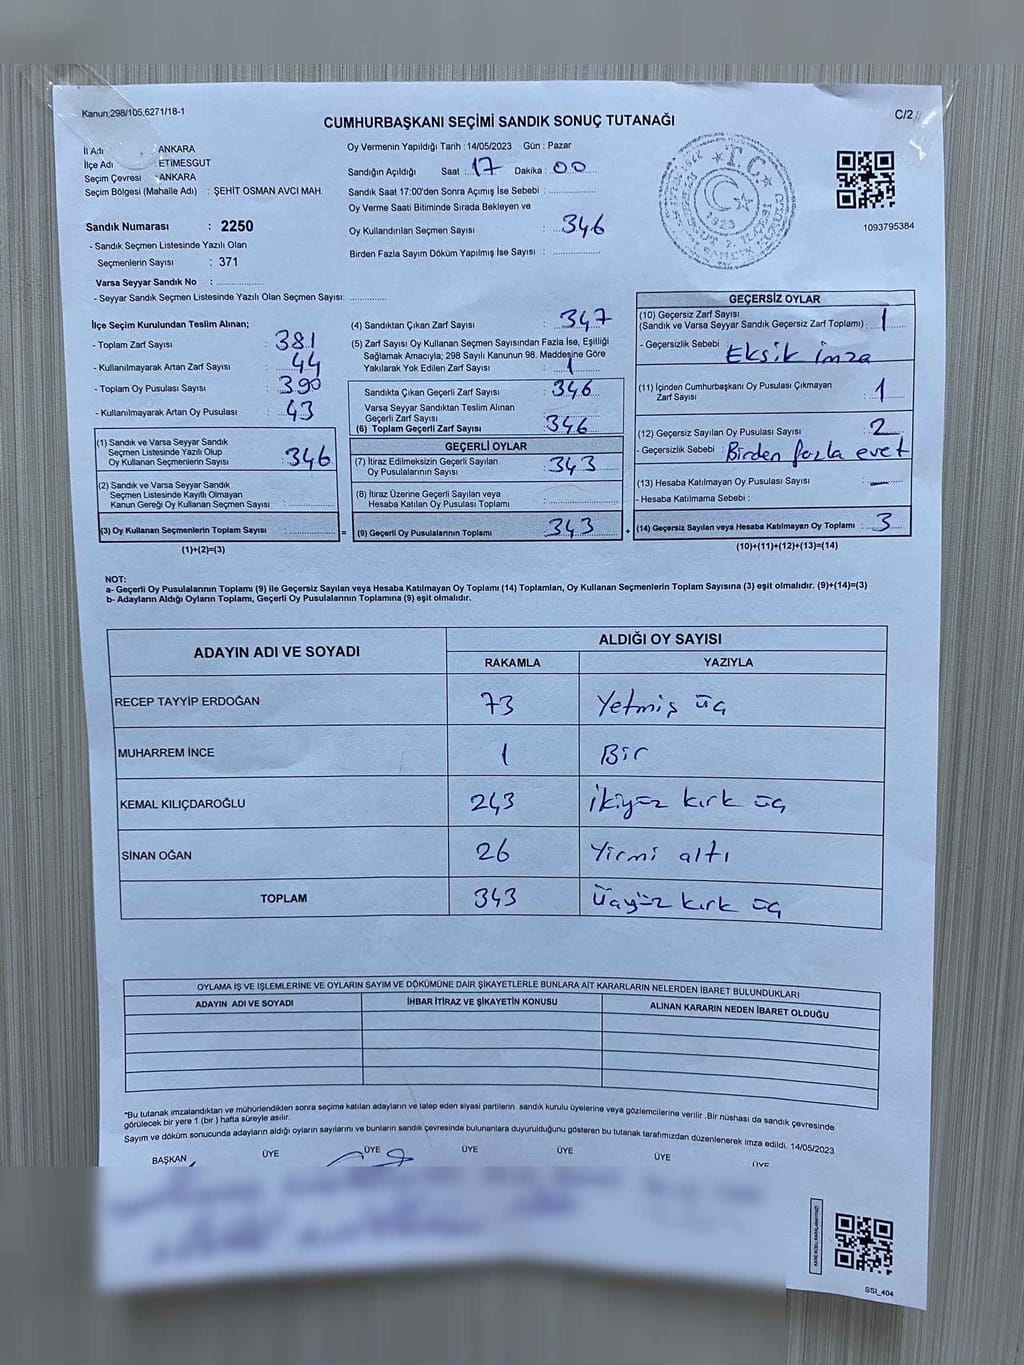 Kanun;298/105,6271/18-1
C/2
CUMHURBAŞKANI SEÇİMİ SANDIK SONUÇ TUTANAĞI
İl Adı : ANKARA
İlçe Adı : ETİMESGUT
Seçim Çevresi : ANKARA
Seçim Bölgesi (Mahalle Adı) : ŞEHİT OSMAN AVCI MAH.
Sandık Numarası : 2250
- Sandık Seçmen Listesinde Yazılı Olan
Seçmenlerin Sayısı : 371
Varsa Seyyar Sandık No : ..................
- Seyyar Sandık Seçmen Listesinde Yazılı Olan Seçmen Sayısı: .............
Oy Vermenin Yapıldığı Tarih :14/05/2023 Gün : Pazar
Sandığın Açıldığı Saat : 17 Dakika : 00
Sandık Saat 17:00'den Sonra Açımış İse Sebebi : ................
Oy Verme Saati Bitiminde Sırada Bekleyen ve
Oy Kullandırılan Seçmen Sayısı : 346
Birden Fazla Sayım Döküm Yapılmış İse Sayısı : ................
T.C.
1923
1093795384
İlçe Seçim Kurulundan Teslim Alınan;
- Toplam Zarf Sayısı : 381
- Kullanılmayarak Artan Zarf Sayısı : 44
- Toplam Oy Pusulası Sayısı : 390
- Kullanılmayarak Artan Oy Pusulası : 43
(1) Sandık ve Varsa Seyyar Sandık
Seçmen Listesinde Yazılı Olup
Oy Kullanan Seçmenlerin Sayısı : 346
(2) Sandık ve Varsa Seyyar Sandık
Seçmen Listesinde Kayıtlı Olmayan
Kanun Gereği Oy Kullanan Seçmen Sayısı : ................
(3) Oy Kullanan Seçmenlerin Toplam Sayısı : ................ =
(1)+(2)=(3)
(4) Sandıktan Çıkan Zarf Sayısı : 347
(5) Zarf Sayısı Oy Kullanan Seçmen Sayısından Fazla İse, Eşitliği
Sağlamak Amacıyla; 298 Sayılı Kanunun 98. Maddesine Göre
Yakılarak Yok Edilen Zarf Sayısı : 1
Sandıkta Çıkan Geçerli Zarf Sayısı : 346
Varsa Seyyar Sandıktan Teslim Alınan
Geçerli Zarf Sayısı
(6) Toplam Geçerli Zarf Sayısı : 346
GEÇERLİ OYLAR
(7) İtiraz Edilmeksizin Geçerli Sayılan
Oy Pusulalarının Sayısı : 343
(8) İtiraz Üzerine Geçerli Sayılan veya
Hesaba Katılan Oy Pusulası Toplamı : ................
(9) Geçerli Oy Pusulalarının Toplamı : 343 +
GEÇERSİZ OYLAR
(10) Geçersiz Zarf Sayısı
(Sandık ve Varsa Seyyar Sandık Geçersiz Zarf Toplamı) : 1
- Geçersizlik Sebebi : Eksik imza
(11) İçinden Cumhurbaşkanı Oy Pusulası Çıkmayan
Zarf Sayısı : 1
(12) Geçersiz Sayılan Oy Pusulası Sayısı : 2
- Geçersizlik Sebebi : Birden fazla evet
(13) Hesaba Katılmayan Oy Pusulası Sayısı : —
- Hesaba Katılmama Sebebi :
(14) Geçersiz Sayılan veya Hesaba Katılmayan Oy Toplamı : 3
(10)+(11)+(12)+(13)=(14)
NOT:
a- Geçerli Oy Pusulalarının Toplamı (9) ile Geçersiz Sayılan veya Hesaba Katılmayan Oy Toplamı (14) Toplamları, Oy Kullanan Seçmenlerin Toplam Sayısına (3) eşit olmalıdır. (9)+(14)=(3)
b- Adayların Aldığı Oyların Toplamı, Geçerli Oy Pusulalarının Toplamına (9) eşit olmalıdır.
ADAYIN ADI VE SOYADI
ALDIĞI OY SAYISI
RAKAMLA YAZIYLA
RECEP TAYYİP ERDOĞAN 73 Yetmiş üç
MUHARREM İNCE 1 Bir
KEMAL KILIÇDAROĞLU 243 İkiyüz kırk üç
SİNAN OĞAN 26 Yirmi altı
TOPLAM 343 Üçyüz kırk üç
OYLAMA İŞ VE İŞLEMLERİNE VE OYLARIN SAYIM VE DÖKÜMÜNE DAİR ŞİKAYETLERLE BUNLARA AİT KARARLARIN NELERDEN İBARET BULUNDUKLARI
ADAYIN ADI VE SOYADI İHBAR İTİRAZ VE ŞİKAYETİN KONUSU ALINAN KARARIN NEDEN İBARET OLDUĞU
*Bu tutanak imzalandıktan ve mühürlendikten sonra seçime katılan adayların ve talep eden siyasi partilerin sandık kurulu üyelerine veya gözlemcilerine verilir .Bir nüshası da sandık çevresinde
görülecek bir yere 1 (bir ) hafta süreyle asılır.
Sayım ve döküm sonucunda adayların aldığı oyların sayılarını ve bunların sandık çevresinde bulunanlara duyurulduğunu gösteren bu tutanak tarafımızdan düzenlenerek imza edildi. 14/05/2023
BAŞKAN ÜYE ÜYE ÜYE ÜYE ÜYE ÜYE
SSI_404